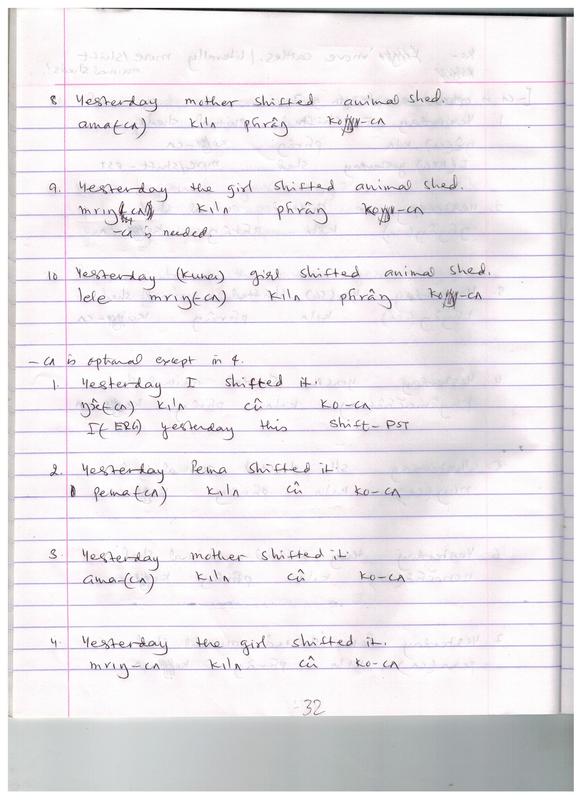 8 Yesterday mother shifted animal shed.
ama(-cʌ) kilʌ phrâŋ ko-cʌ
9. Yesterday the girl shifted animal shed.
mrıŋ kilʌ phrâŋ ko-cʌ
-cʌ is needed.
10 Yesterday (Kunda) girl shifted animal shed.
lele mrıŋ(-cʌ) kilʌ phrâŋ ko-cʌ
-cʌ is optional except in 4.
1. Yesterday I shifted it.
ŋɔ̂(-cʌ) kilʌ cû ko-cʌ
I(-ERG) yesterday this shift-PST
2. Yesterday Pema shifted it.
pema(-cʌ) kilʌ cû ko-cʌ
3. Yesterday mother shifted it.
ama-(cʌ) kilʌ cû ko-cʌ
4. Yesterday the girl shifted it.
mrıŋ-cʌ kilʌ cû ko-cʌ
32